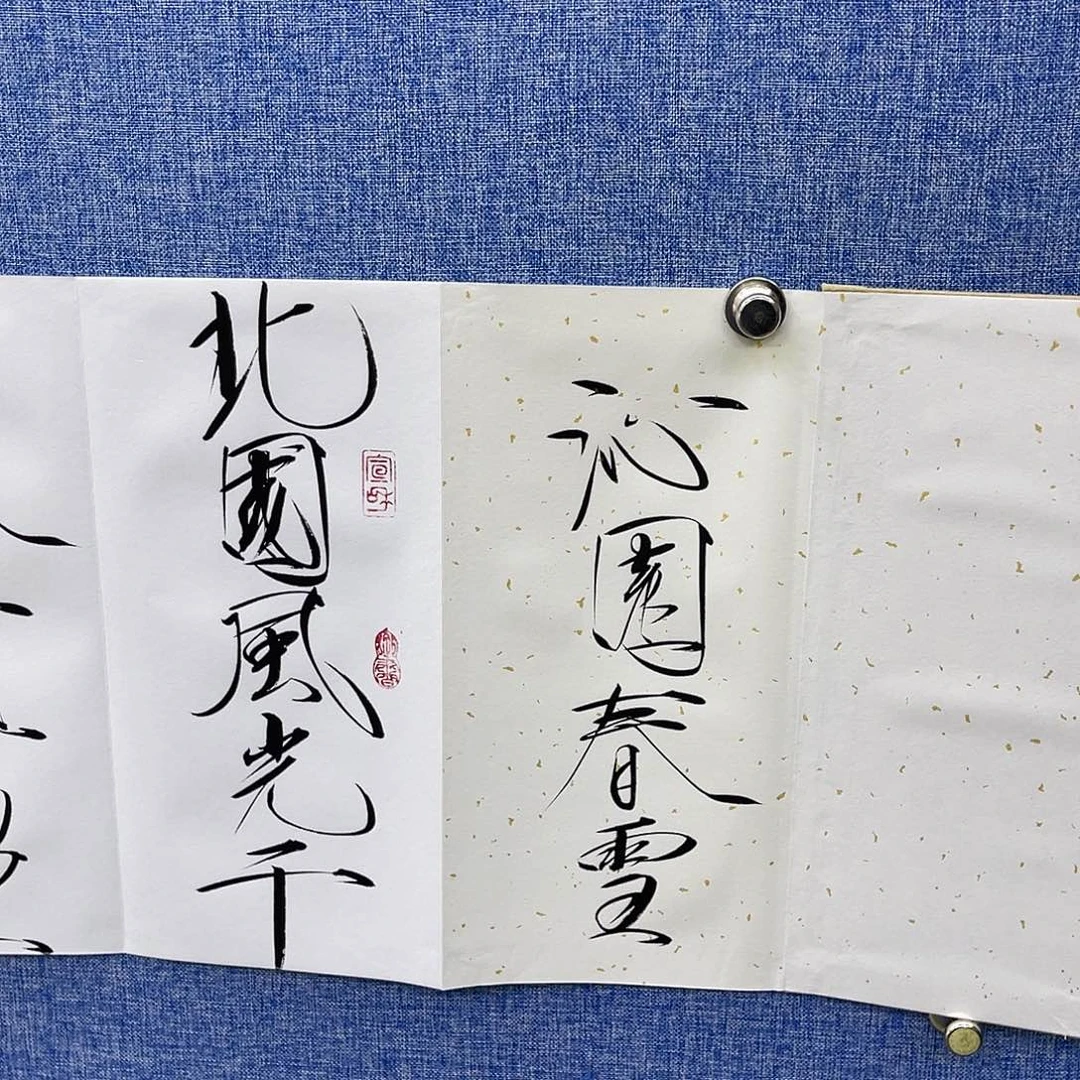 沁園春雪
北國風光千
宣和